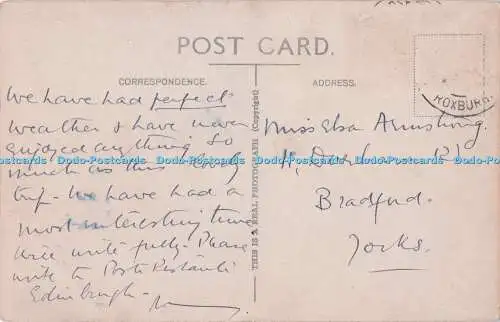 POST CARD.
CORRESPONDENCE.
ADDRESS.
ROXBURGH
THIS IS A REAL PHOTOGRAPH (Copyright)
We have had perfect
weather & have never
enjoyed anything so
much as this lovely
trip. We have had a
most interesting time
will write fully. Please
write to Poste Restante
Edinburgh.
Miss Elsa Armstrong.
Bradford.
Yorks.
Dodo-Postcards Dodo-Postcards Dodo-Postcards Dodo-Postcards Dodo-Postcards